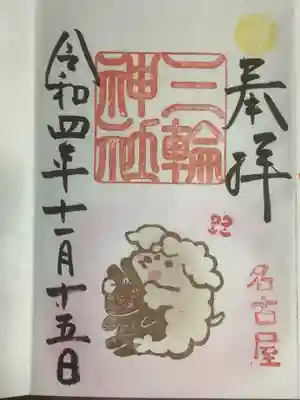 奉拝
三輪
神社
名古屋
令和四年十一月十五日